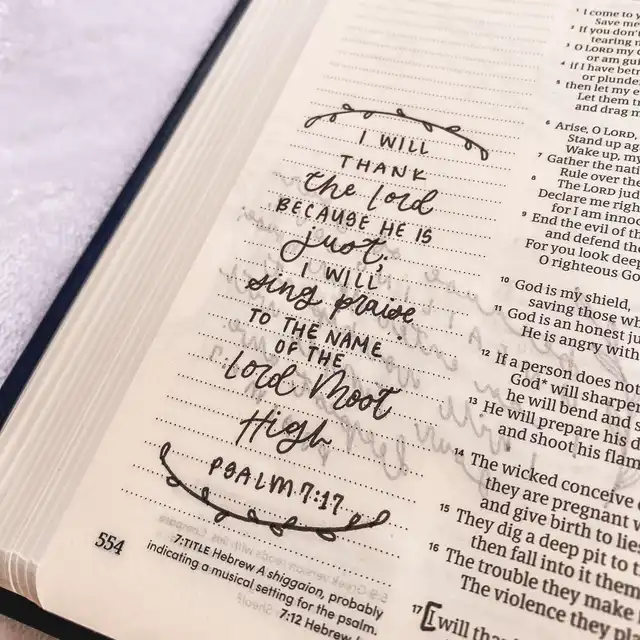 I WILL
THANK
the lord
BECAUSE HE IS
just;
I WILL
sing praise
TO THE NAME
OF THE
Lord Most
High
PSALM 7:17
554
7:TITLE Hebrew A shiggaion, probably
indicating a musical setting for the psalm.
7:12 Hebrew
1 I come to
Save me
2 If you don't
tearing
3 O LORD my
or am
4 if I have
or plunde
5 then let my
Let them
and drag m
6 Arise, O LORD,
Stand up
Wake up, my
7 Gather the
Rule over the
8 The LORD jud
Declare me righ
for I am inno
9 End the evil of
and defend th
For you look deep
O righteous Go
10 God is my shield,
saving those wh
11 God is an honest ju
He is angry with
12 If a person does no
God* will sharpe
he will bend and s
13 He will prepare his d
and shoot his flam
14 The wicked conceive
they are pregnant
and give birth to lies
15 They dig a deep pit to
then fall into it them
16 The trouble they make
The violence they pla
17 I will tha